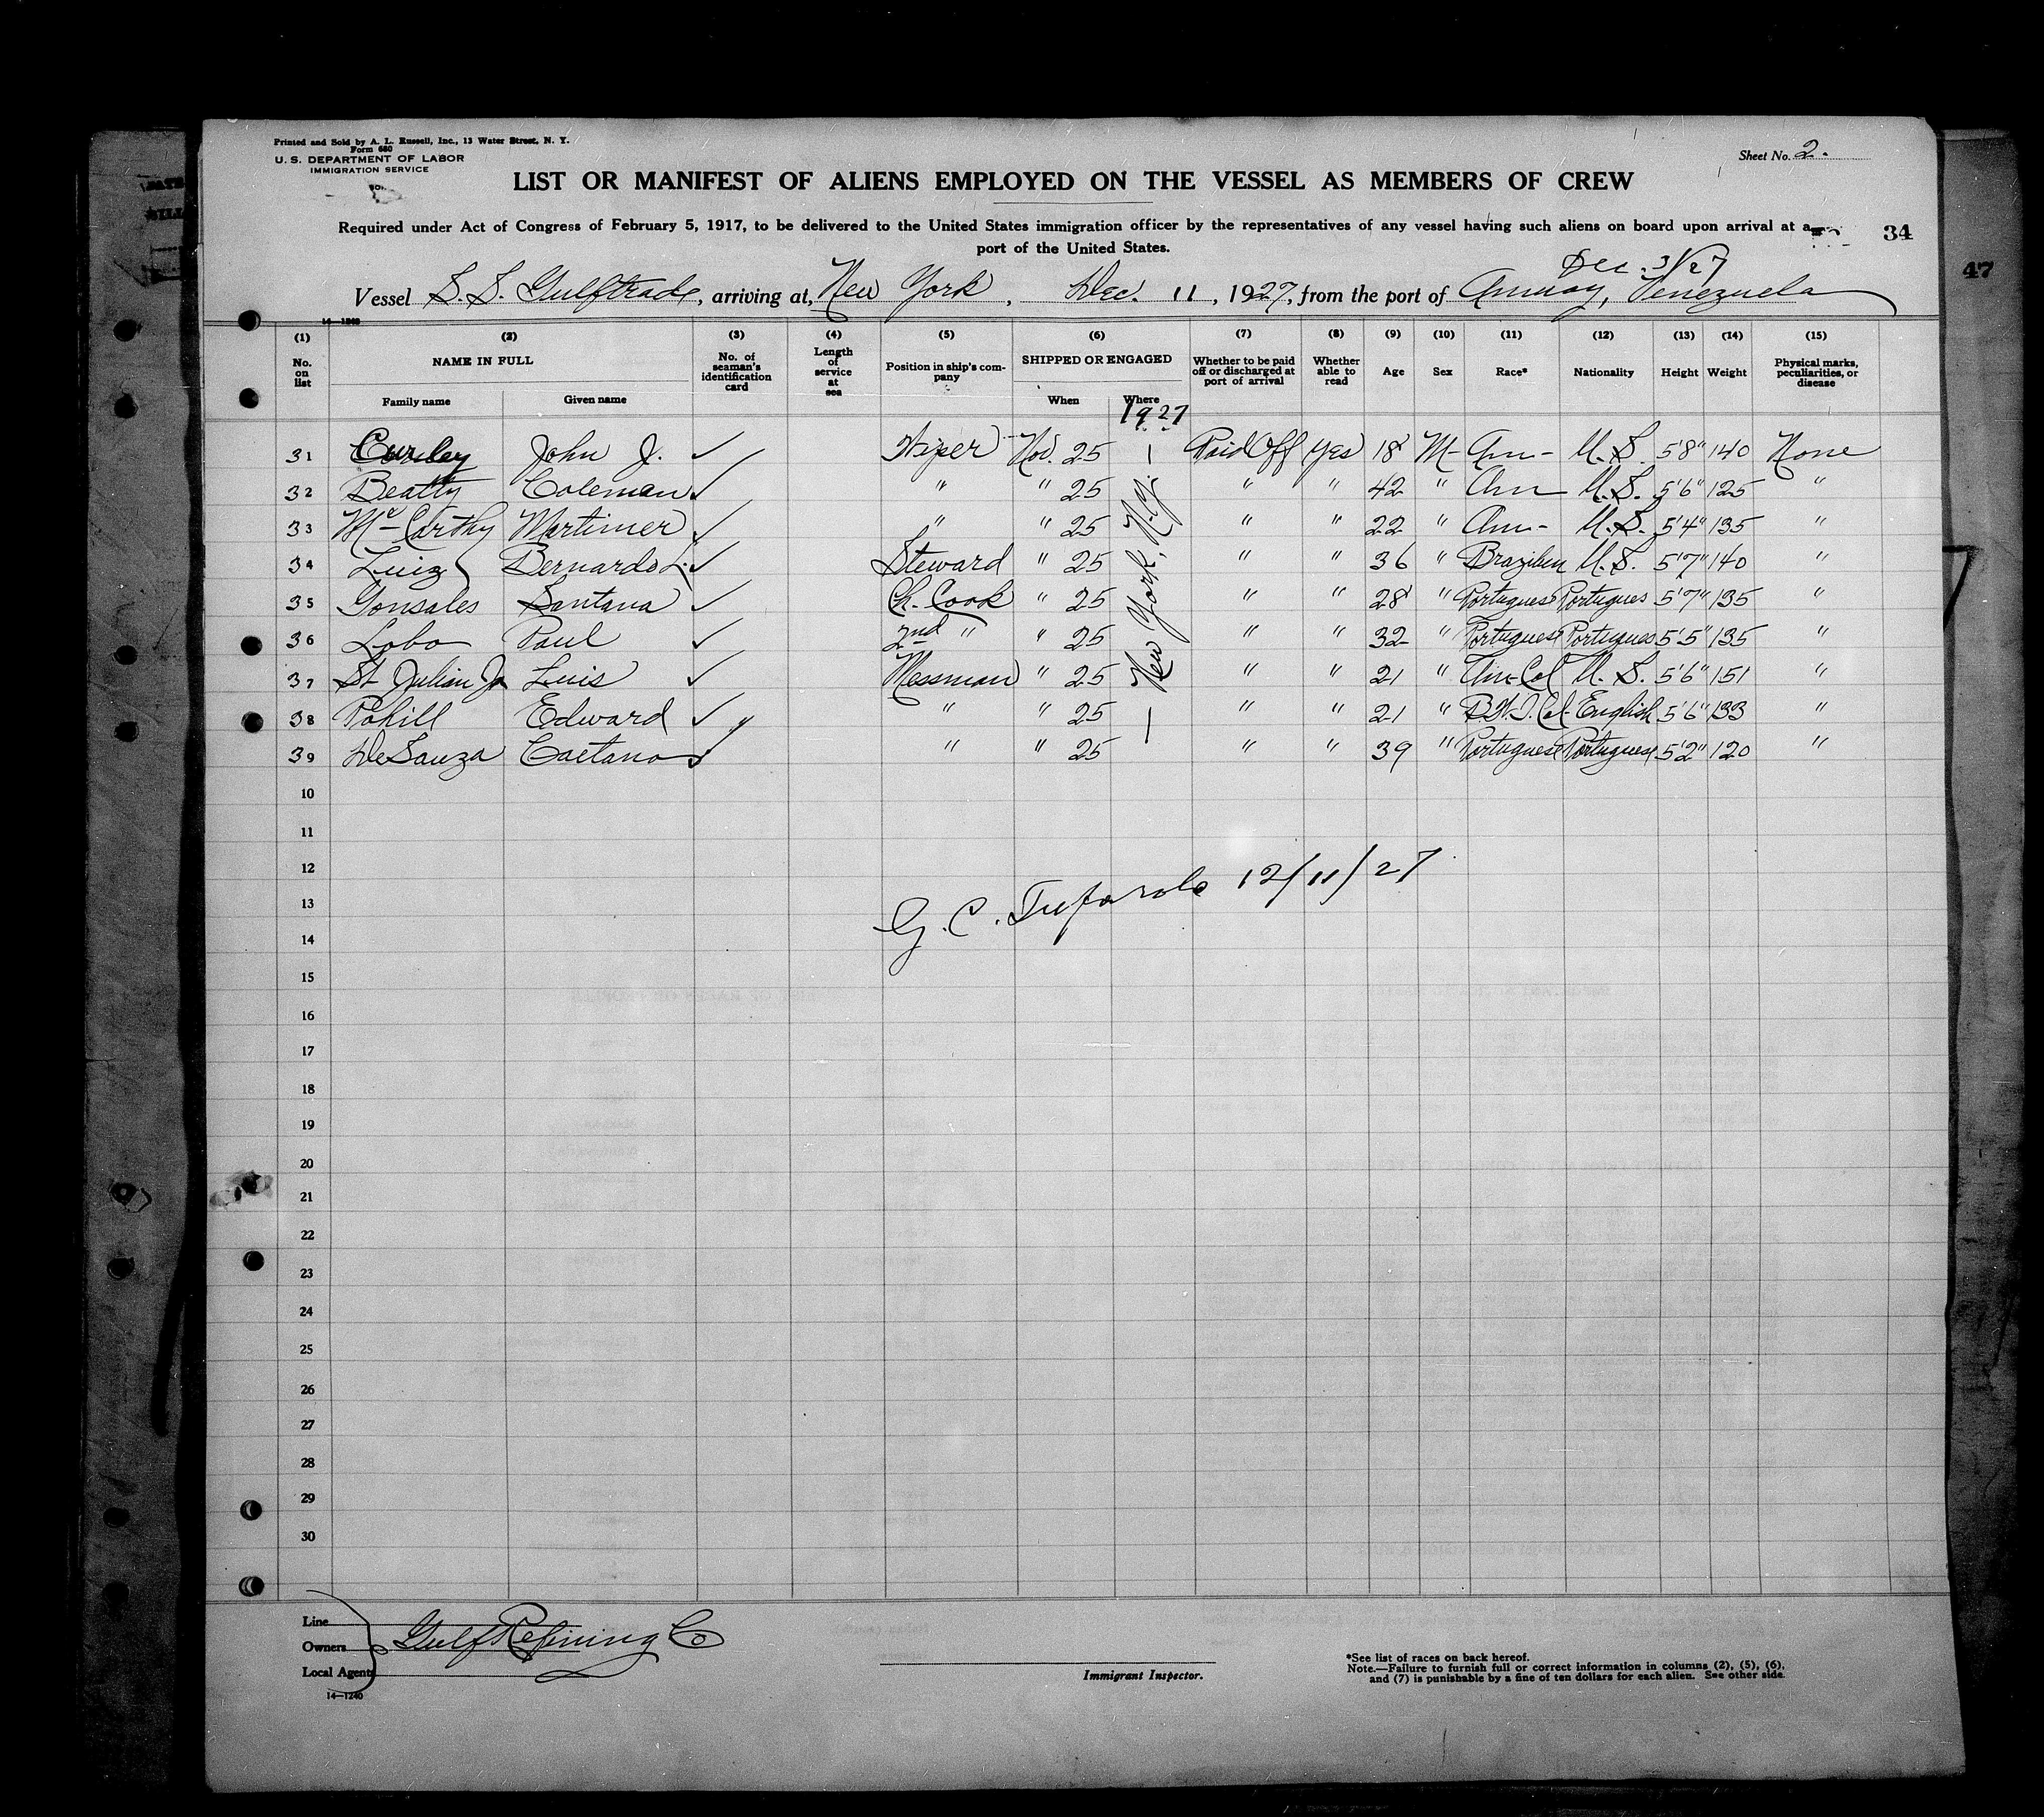 Printed and Sold by A. L. Russell, Inc., 13 Water Street, N. Y.
Form 680
U. S. DEPARTMENT OF LABOR
IMMIGRATION SERVICE
Sheet No. 2.
LIST OR MANIFEST OF ALIENS EMPLOYED ON THE VESSEL AS MEMBERS OF CREW
Required under Act of Congress of February 5, 1917, to be delivered to the United States immigration officer by the representatives of any vessel having such aliens on board upon arrival at a
port of the United States.
34
47
Dec. 3/27
Vessel S.S. Gulftrade, arriving at, New York, Dec. 11, 1927, from the port of Amuay, Venezuela
14—1240
(1) (2) (3) (4) (5) (6) (7) (8) (9) (10) (11) (12) (13) (14) (15)
No. on list NAME IN FULL Family name Given name No. of seaman's identification card Length of service at sea Position in ship's company SHIPPED OR ENGAGED When Where Whether to be paid off or discharged at port of arrival Whether able to read Age Sex Race* Nationality Height Weight Physical marks, peculiarities, or disease
1927
31 Curley John J. ✓ Wiper Nov. 25 | Paid Off Yes 18 M- Am- U.S. 5'8" 140 None
32 Beatty Coleman ✓ " " 25 " " 42 " Am U.S. 5'6" 125 "
33 Mc-Carthy Mortimer ✓ " " 25 " " 22 " Am- U.S. 5'4" 135 "
34 Luiz Bernardo L. ✓ Steward " 25 " " 36 " Brazilien U.S. 5'7" 140 "
35 Gonsales Santana ✓ Ch. Cook " 25 " " 28 " Portuguese Portugues 5'7" 135 "
36 Lobo Paul ✓ 2nd " " 25 " " 32 " Portuguese Portugues 5'5" 135 "
37 St Julian Jr Luis ✓ Messman " 25 " " 21 " Am-Col U.S. 5'6" 151 "
38 Pohill Edward ✓ " " 25 | " " 21 " B.W.I. Col- English 5'6" 133 "
39 DeSouza Caetano ✓ " " 25 " " 39 " Portuguese Portuguese 5'2" 120 "
New York, N.Y.
10
11
12
G. C. 12/11/27
13
14
15
16
17
18
19
20
21
22
23
24
25
26
27
28
29
30
Line
Owners
Local Agents
Gulf Refining Co
14—1240
Immigrant Inspector.
*See list of races on back hereof.
Note.—Failure to furnish full or correct information in columns (2), (5), (6),
and (7) is punishable by a fine of ten dollars for each alien. See other side.